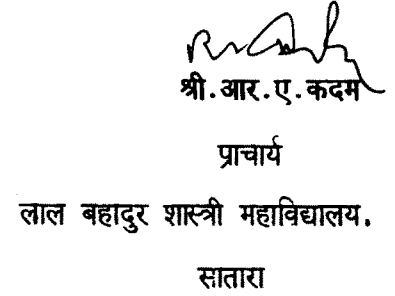 श्री.आर.ए.कदम
प्राचार्य
लाल बहादुर शास्त्री महाविद्यालय.
सातारा